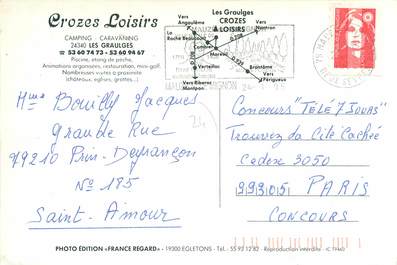 Crozes Loisirs
CAMPING CARAVANING
24340 LES GRAULGES
☎ 53 60 74 73 - 53 60 94 67
Piscine, étang de pêche,
Animations organisées, restauration, mini-golf.
Nombreuses visites à proximité
(châteaux, église, grottes...)
Vers Angoulême
Les Graulges
CROZES LOISIRS
Vers Nontron
La Roche Beaucourt
Combiers
Mareuil
D.708
D.939
Verteillac
Brantôme
Vers Riberac
Montpon
Vers Périgueux
Mme Bouilly Jacques
Grande Rue
79210 Prin-Deyrançon
No 185
Saint-Amour
Concours "TÉLÉ 7 JOURS"
Trouvez la Cité Cachée
Cedex 3050
99305 PARIS
CONCOURS
PHOTO ÉDITION «FRANCE REGARD» - 19300 ÉGLETONS - Tél. 55 93 12 82 - Reproduction interdite